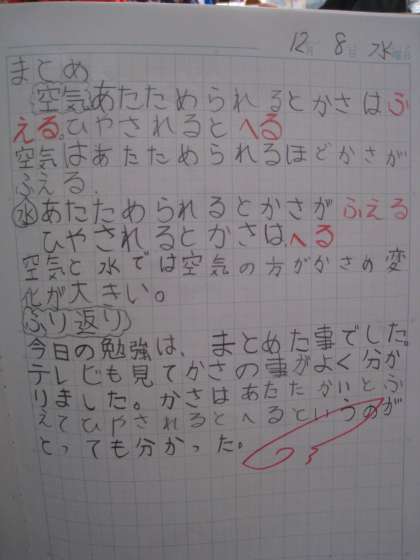 12月 8日 水曜日
まとめ
空気あたためられるとかさはふ
える。ひやされると へる
空気はあたためられるほどかさが
ふえる。
水あたためられるとかさが ふえる
ひやされるとかさは、へる
空気と水では空気の方がかさの変
化が大きい。
ふり返り
今日の勉強は、まとめた事でした。
テレビも見てかさの事がよく分か
りました。かさはあたたかいとふ
えてひやされるとへるというのが
とっても分かった。